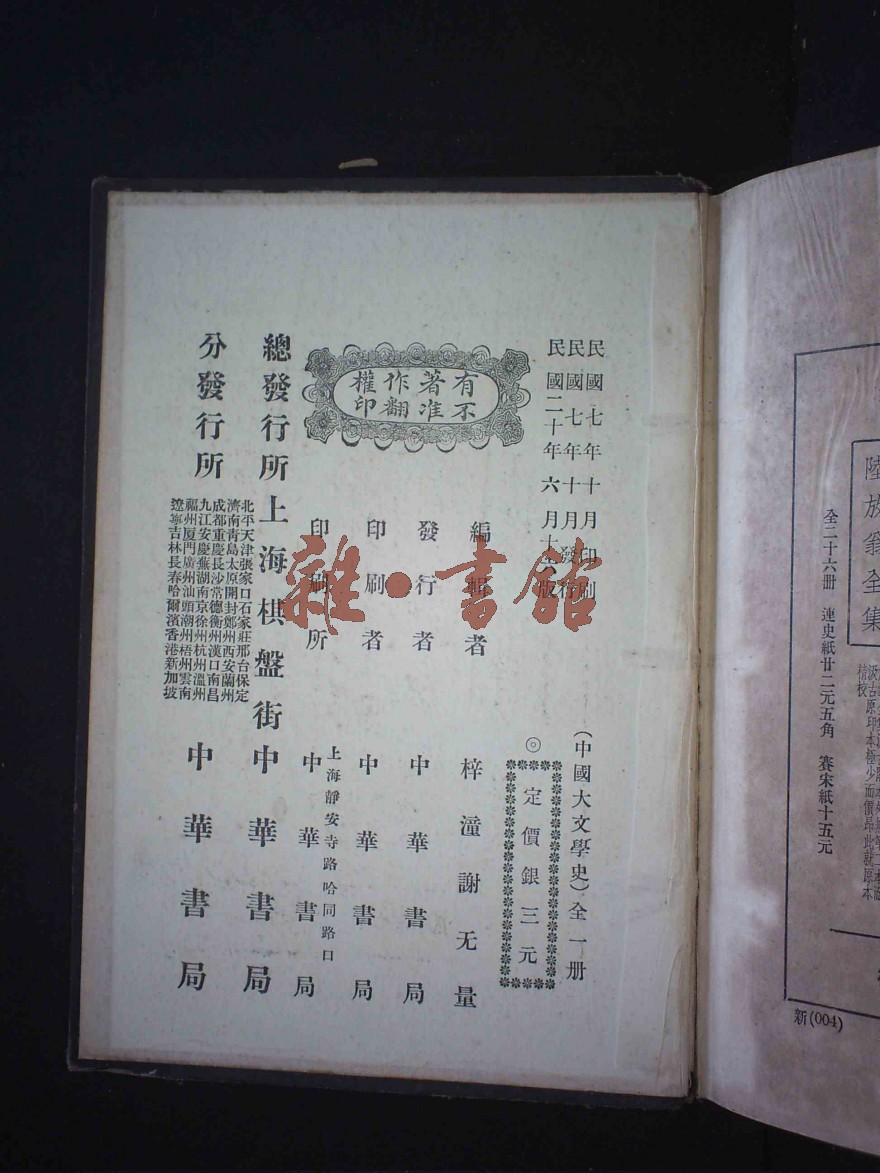 民國七年十月印刷
民國七年十月發行
民國二十年六月十六版
(中國大文學史)全一册
◎定價銀三元
有著作權
不准翻印
編輯者 梓潼謝无量
發行者 中華書局
印刷者 中華書局
上海靜安寺路哈同路口
印刷所 中華書局
總發行所 上海棋盤街 中華書局
分發行所 中華書局
北平天津張家口石家莊邢台保定
濟南青島太原開封鄭州西安蘭州
成都重慶長沙常德衡州漢口南昌
九江安慶蕪湖南京徐州杭州溫州
福州厦門廣州汕頭潮州梧州雲南
遼寧吉林長春哈爾濱香港新加坡
雜·書館
陸放翁全集
全二十六册 連史紙廿二元五角 賽宋紙十五元
汲古原印本極少而價昂此就原本
精校
新(004)